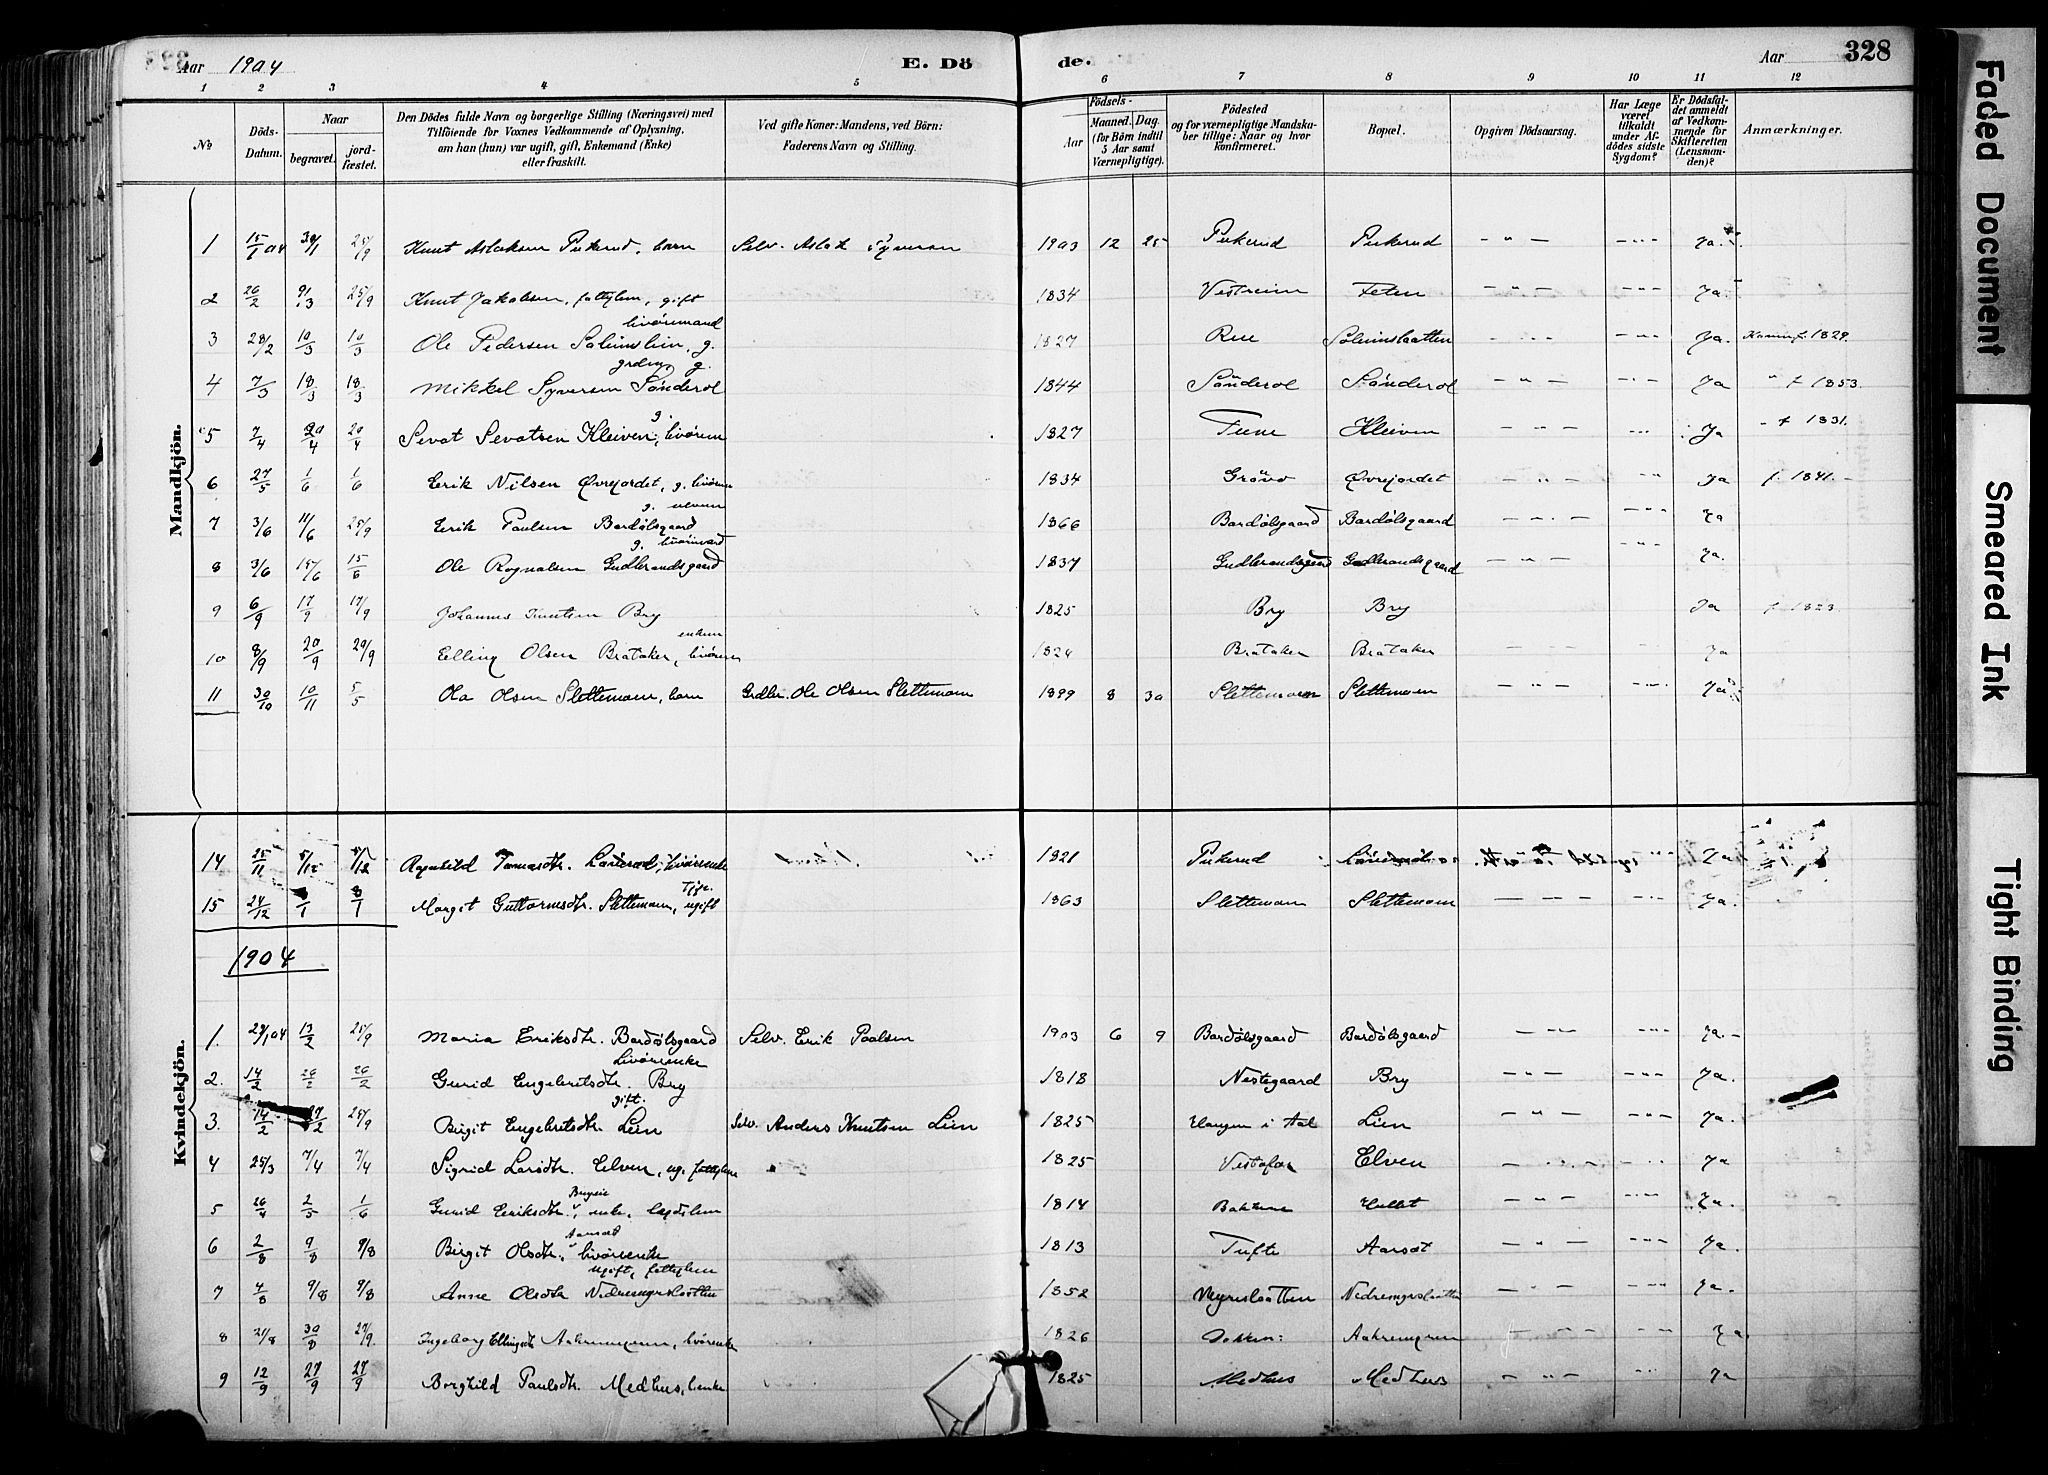 Aar 1904 E. Dö de. Aar 328
1 2 3 4 5 6 7 8 9 10 11 12
No Döds-Datum. Naar begravet. jordfæstet. Den Dödes fulde Navn og borgerlige Stilling (Næringsvei) med Tilföiende for Voxnes Vedkommende af Oplysning, om han (hun) var ugift, gift, Enkemand (Enke) eller fraskilt. Ved gifte Koner: Mandens, ved Börn: Faderens Navn og Stilling. Födsels- Aar Maaned. Dag. (for Börn indtil 5 Aar samt Værnepligtige). Födested og for værnepligtige Mandskaber tillige: Naar og hvor konfirmeret. Bopæl. Opgiven Dödsaarsag. Har Læge været tilkaldt under Afdödes sidste Sygdom? Er Dödsfaldet anmeldt af Vedkommende for Skifteretten (Lensmanden)? Anmærkninger.
Mandkjön.
1 15/1 04 30/1 25/9 Knut Aslaksen Pukerud, barn Selv. Aslak Syversen 1903 12 25 Pukerud Pukerud - " - - " - Ja.
2 26/2 9/3 25/9 Knut Jakobsen, fattylem, gift 1834 Vestreim Feten - " - - " - Ja.
livöremand
3 28/2 10/3 10/3 Ole Pedersen Soleimslien, g. 1827 Rue Soleimslaatten - " - - " - Ja. Kommf. 1829.
grdem g.
4 7/3 18/3 18/3 Mikkel Syversen Sönderol 1844 Sönderol Sönderol - " - - " - Ja " f 1853.
g.
5 7/4 20/4 20/4 Sevat Sevatsen Kleiven, livörem 1827 Tune Kleiven - " - - " - Ja " f 1831.
6 27/5 1/6 1/6 Erik Nilsen Øvrejordet, g. livörem 1834 Gröno Øvrejordet - " - " Ja f. 1841.
g.
7 3/6 11/6 25/9 Erik Paulsen Bardølsgaard 1866 Bardølsgaard Bardølsgaard - " - - " - Ja
g. livöremand
8 3/6 15/6 15/6 Ole Rognalsen Gudbrandsgaard 1837 Gudbrandsgaard Gudbrandsgaard - " - - " - Ja.
9 6/9 17/9 17/9 Johannes Knutsen Bry 1825 Bry Bry Ja f 1823.
enkem
10 8/9 20/9 20/9 Elling Olsen Brataker, livörem 1824 Brataker Brataker - " - - " - Ja
11 30/10 10/11 5/5 Ola Olsen Slettemoen, barn Grdbr. Ole Olsen Slettemoen 1899 8 30 Slettemoen Slettemoen - " - - " - Ja.
Kvindekjön.
14 25/11 5/12 5/12 Ragnhild Tomasdtr. livörenke 1821 Pukerud Ja
Tjge.
15 24/12 8/1 8/1 Margit Guttormsdtr. Slettemoen, ugift 1863 Slettemoen Slettemoen - - - - " - Ja.
1904
1. 29/1 04 13/2 25/9 Maria Eriksdtr. Bardølsgaard Selv. Erik Paalsen 1903 6 9 Bardølsgaard Bardølsgaard - " - - " - Ja.
Livörenke
2. 14/2 26/2 26/2 Gurid Engebretsdtr. Bry 1818 Nestegaard Bry - " - - " - Ja.
gift.
3. 14/2 27/2 25/9 Birgit Engebretsdtr. Lien Selv. Anders Knutsen Lien 1825 Haugen i Aal Lien - " - - " - Ja.
4 25/3 7/4 7/4 Sigrid Larsdtr. Elven, ug. fattylem 1825 Elven - " - - " - Ja
5 26/4 2/5 1/6 Gurid Eriksdtr., enke, legdslem 1814 Bakken - " - - " - Ja.
Aarsot
6 2/8 9/8 9/8 Birgit Olsdtr., livörenke 1813 Tufte Aarsot - " - - " - Ja.
ugift, fattylem
7 4/8 9/8 9/8 Anne Olsdtr Nedremyrslaatten 1852 Myreslaatten Nedremyrslaatten - " - - " - Ja.
8 21/8 30/8 27/9. Ingeborg Ellingsdt Aakremoen, livörenke 1826 Aakremoen - " - - " - Ja
9 12/9 27/9 27/9 Borghild Paulsdtr. Medhus, enke 1825 Medhus Medhus - " - - " - Ja
Faded Document
Smeared Ink
Tight Binding